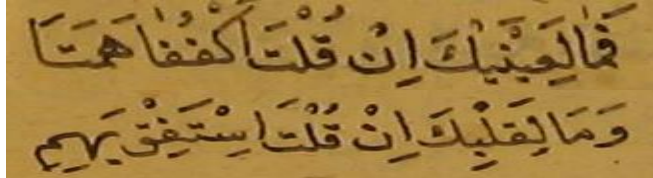 فَمَا لِعَيْنَيْكَ اِنْ قُلْتَ اكْفُفَا هَمَتَا
وَمَا لِقَلْبِكَ اِنْ قُلْتَ اسْتَفِقْ يَهِمِ